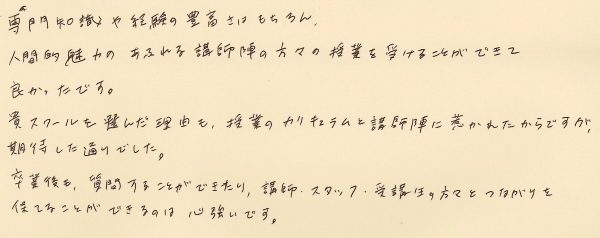 専門知識や経験の豊富さはもちろん、
人間的魅力のあふれる講師陣の方々の授業を受けることができて
良かったです。
貴スクールを選んだ理由も、授業のカリキュラムと講師陣に惹かれたからですが、
期待した通りでした。
卒業後も、質問することができたり、講師・スタッフ・受講生の方々とつながりを
保てることができるのは心強いです。